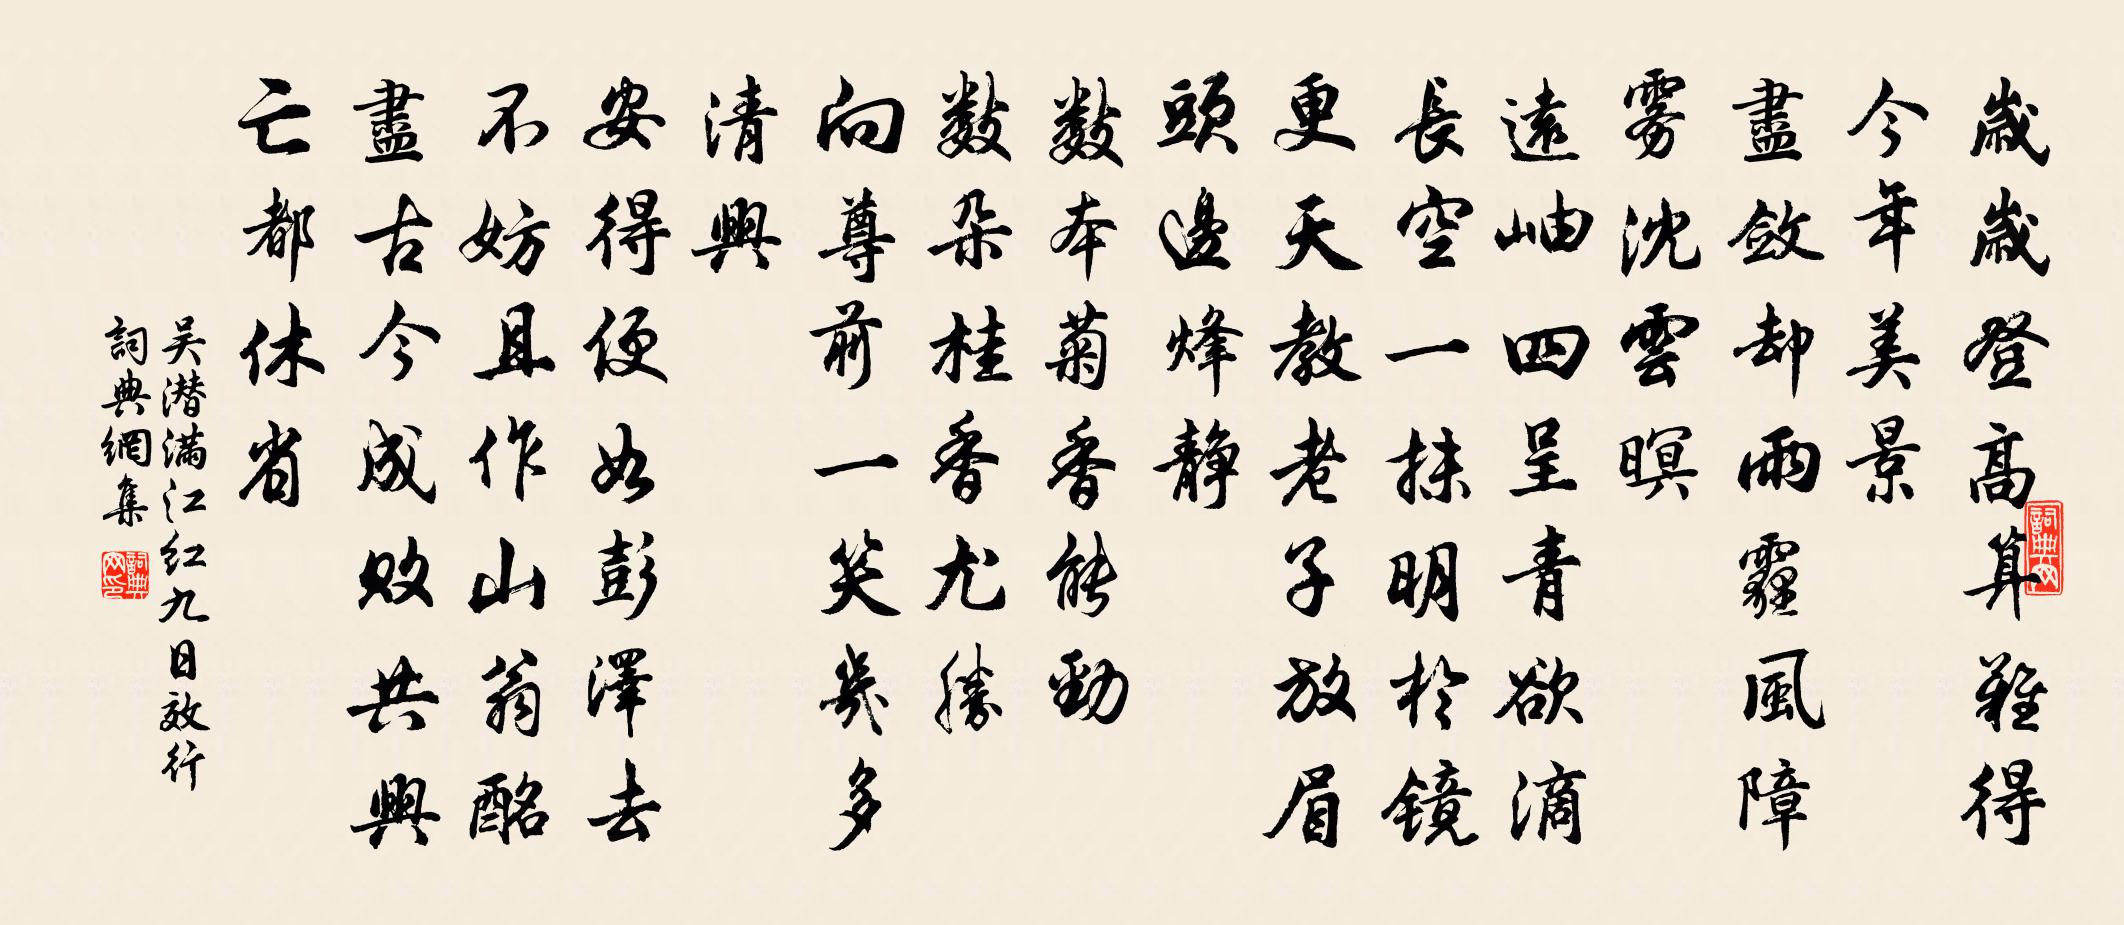 歲歲登高算難得
今年美景
盡斂却雨霾風障
雾沈雲暝
遠岫四呈青欲滴
長空一抹明於镜
更天教老子放眉
頭邊烽静
數本菊香能勁
數朵桂香尤勝
向尊前一笑幾多
清興
安得便如彭澤去
不妨且作山翁酩
盡古今成敗共興
亡都休省
吴潜满江红九日效行
詞典網集
詞典网
詞典网印